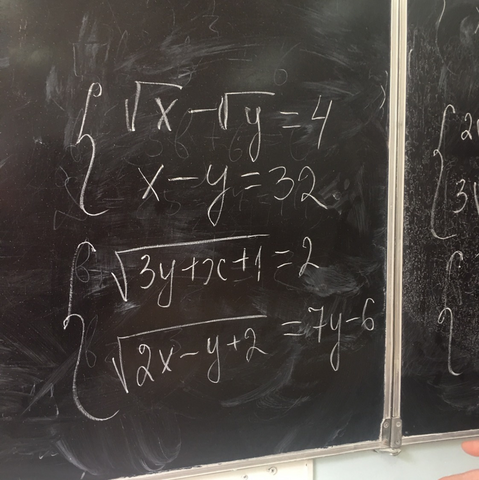 √x - √y = 4
x - y = 32
√(3y + x + 1) = 2
√(2x - y + 2) = 7y - 6